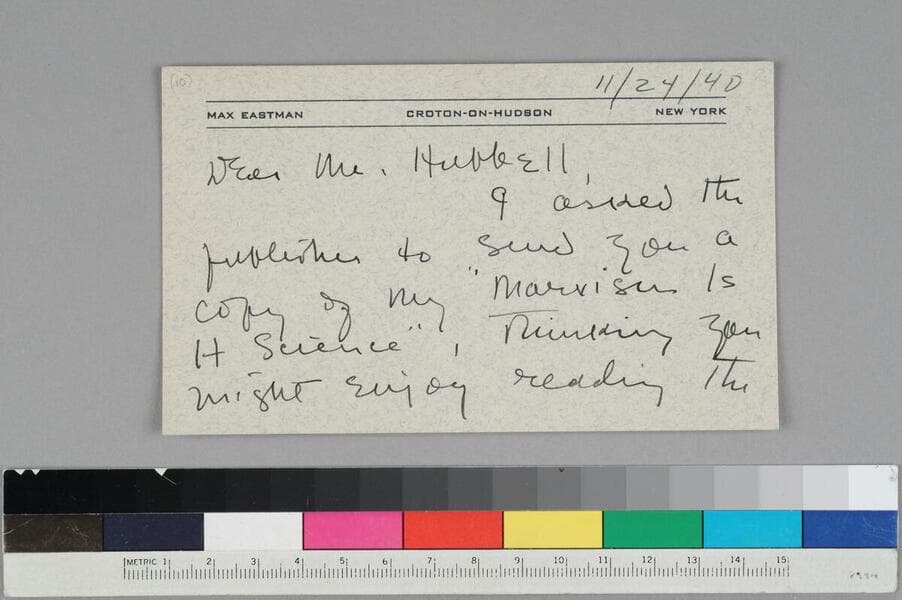 (10)
11/24/40
MAX EASTMAN CROTON-ON-HUDSON NEW YORK
Dear Mr. Hubbell,
I asked the
publisher to send you a
copy of my "Marxism Is
It Science", thinking you
might enjoy reading the
METRIC 1 2 3 4 5 6 7 8 9 10 11 12 13 14 15